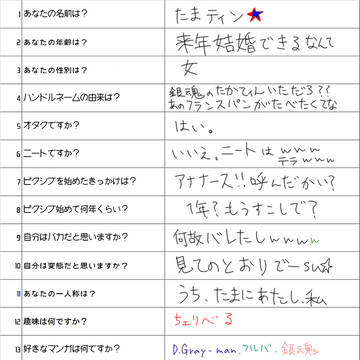 1 あなたの名前は? たまティン★
2 あなたの年齢は? 来年結婚できるなんて
3 あなたの性別は? 女
4 ハンドルネームの由来は? 銀魂のたかてぃんいただろ??
あのフランスパンがたべたくてな
5 オタクですか? はい。
6 ニートですか? いいえ。ニートはwww
テラwww
7 ピクシブを始めたきっかけは? アナナース!!呼んだかい?
8 ピクシブ始めて何年くらい? 1年?もうすこしで?
9 自分はバカだと思いますか? 何故バレたしwwww
10 自分は変態だと思いますか? 見てのとおりでーsu☆
11 あなたの一人称は? うち、たまにわたし、私
12 趣味は何ですか? ちェリべる
13 好きなマンガは何ですか? D.Gray-man、フルバ、銀魂